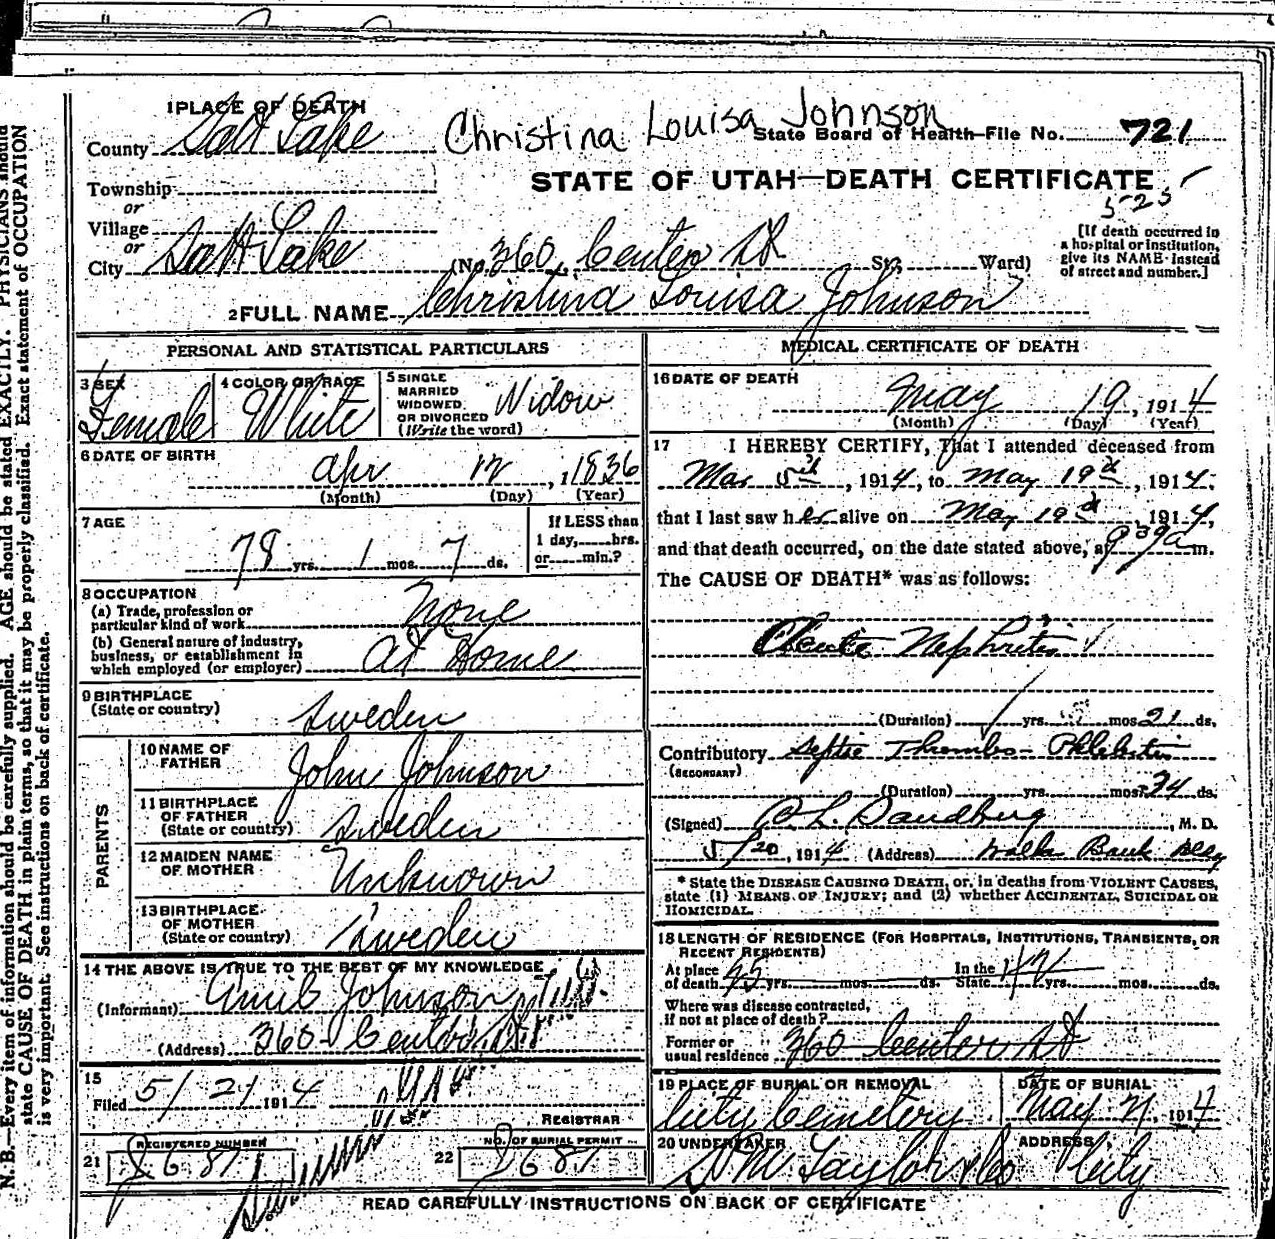 1 PLACE OF DEATH
County Salt Lake
Christina Louisa Johnson
State Board of Health—File No. 721
Township
or
Village
or
City Salt Lake
STATE OF UTAH—DEATH CERTIFICATE
5-25
(No. 360 Center St St; Ward)
[If death occurred in
a hospital or institution,
give its NAME instead
of street and number.]
2 FULL NAME Christina Louisa Johnson
PERSONAL AND STATISTICAL PARTICULARS
3 SEX Female
4 COLOR OR RACE White
5 SINGLE
MARRIED
WIDOWED
OR DIVORCED
(Write the word) Widow
6 DATE OF BIRTH
Apr 12, 1836
(Month) (Day) (Year)
7 AGE
78 yrs. 1 mos. 7 ds.
If LESS than
1 day, hrs.
or min.?
8 OCCUPATION
(a) Trade, profession or
particular kind of work None
(b) General nature of industry,
business, or establishment in
which employed (or employer) At Home
9 BIRTHPLACE
(State or country) Sweden
PARENTS
10 NAME OF
FATHER John Johnson
11 BIRTHPLACE
OF FATHER
(State or country) Sweden
12 MAIDEN NAME
OF MOTHER Unknown
13 BIRTHPLACE
OF MOTHER
(State or country) Sweden
14 THE ABOVE IS TRUE TO THE BEST OF MY KNOWLEDGE
(Informant) Johnson
(Address) 360 Center St
15
Filed 5/21 1914
REGISTRAR
21 REGISTERED NUMBER
22 NO. OF BURIAL PERMIT
MEDICAL CERTIFICATE OF DEATH
16 DATE OF DEATH
May 19, 1914
(Month) (Day) (Year)
17 I HEREBY CERTIFY, That I attended deceased from
Mar 5th, 1914, to May 19th, 1914,
that I last saw her alive on May 19th, 1914,
and that death occurred, on the date stated above, at 9 39 a m.
The CAUSE OF DEATH* was as follows:
Acute Nephritis
(Duration) yrs. mos. 21 ds.
Contributory Septic Thrombo-Phlebitis
(SECONDARY)
(Duration) yrs. mos. 74 ds.
(Signed) Sandberg, M. D.
5/20, 1914 (Address) Walker Bank Bldg
* State the DISEASE CAUSING DEATH, or, in deaths from VIOLENT CAUSES,
state (1) MEANS OF INJURY; and (2) whether ACCIDENTAL, SUICIDAL OR
HOMICIDAL.
18 LENGTH OF RESIDENCE (FOR HOSPITALS, INSTITUTIONS, TRANSIENTS, OR
RECENT RESIDENTS)
At place
of death 45 yrs. mos. ds.
In the
State yrs. mos. ds.
Where was disease contracted,
if not at place of death?
Former or
usual residence 360 Center St
19 PLACE OF BURIAL OR REMOVAL
City Cemetery
DATE OF BURIAL
May 21, 1914
20 UNDERTAKER
Taylor & Co
ADDRESS
City
READ CAREFULLY INSTRUCTIONS ON BACK OF CERTIFICATE
N. B.—Every item of information should be carefully supplied. AGE should be stated EXACTLY. PHYSICIANS should
state CAUSE OF DEATH in plain terms, so that it may be properly classified. Exact statement of OCCUPATION
is very important. See instructions on back of certificate.